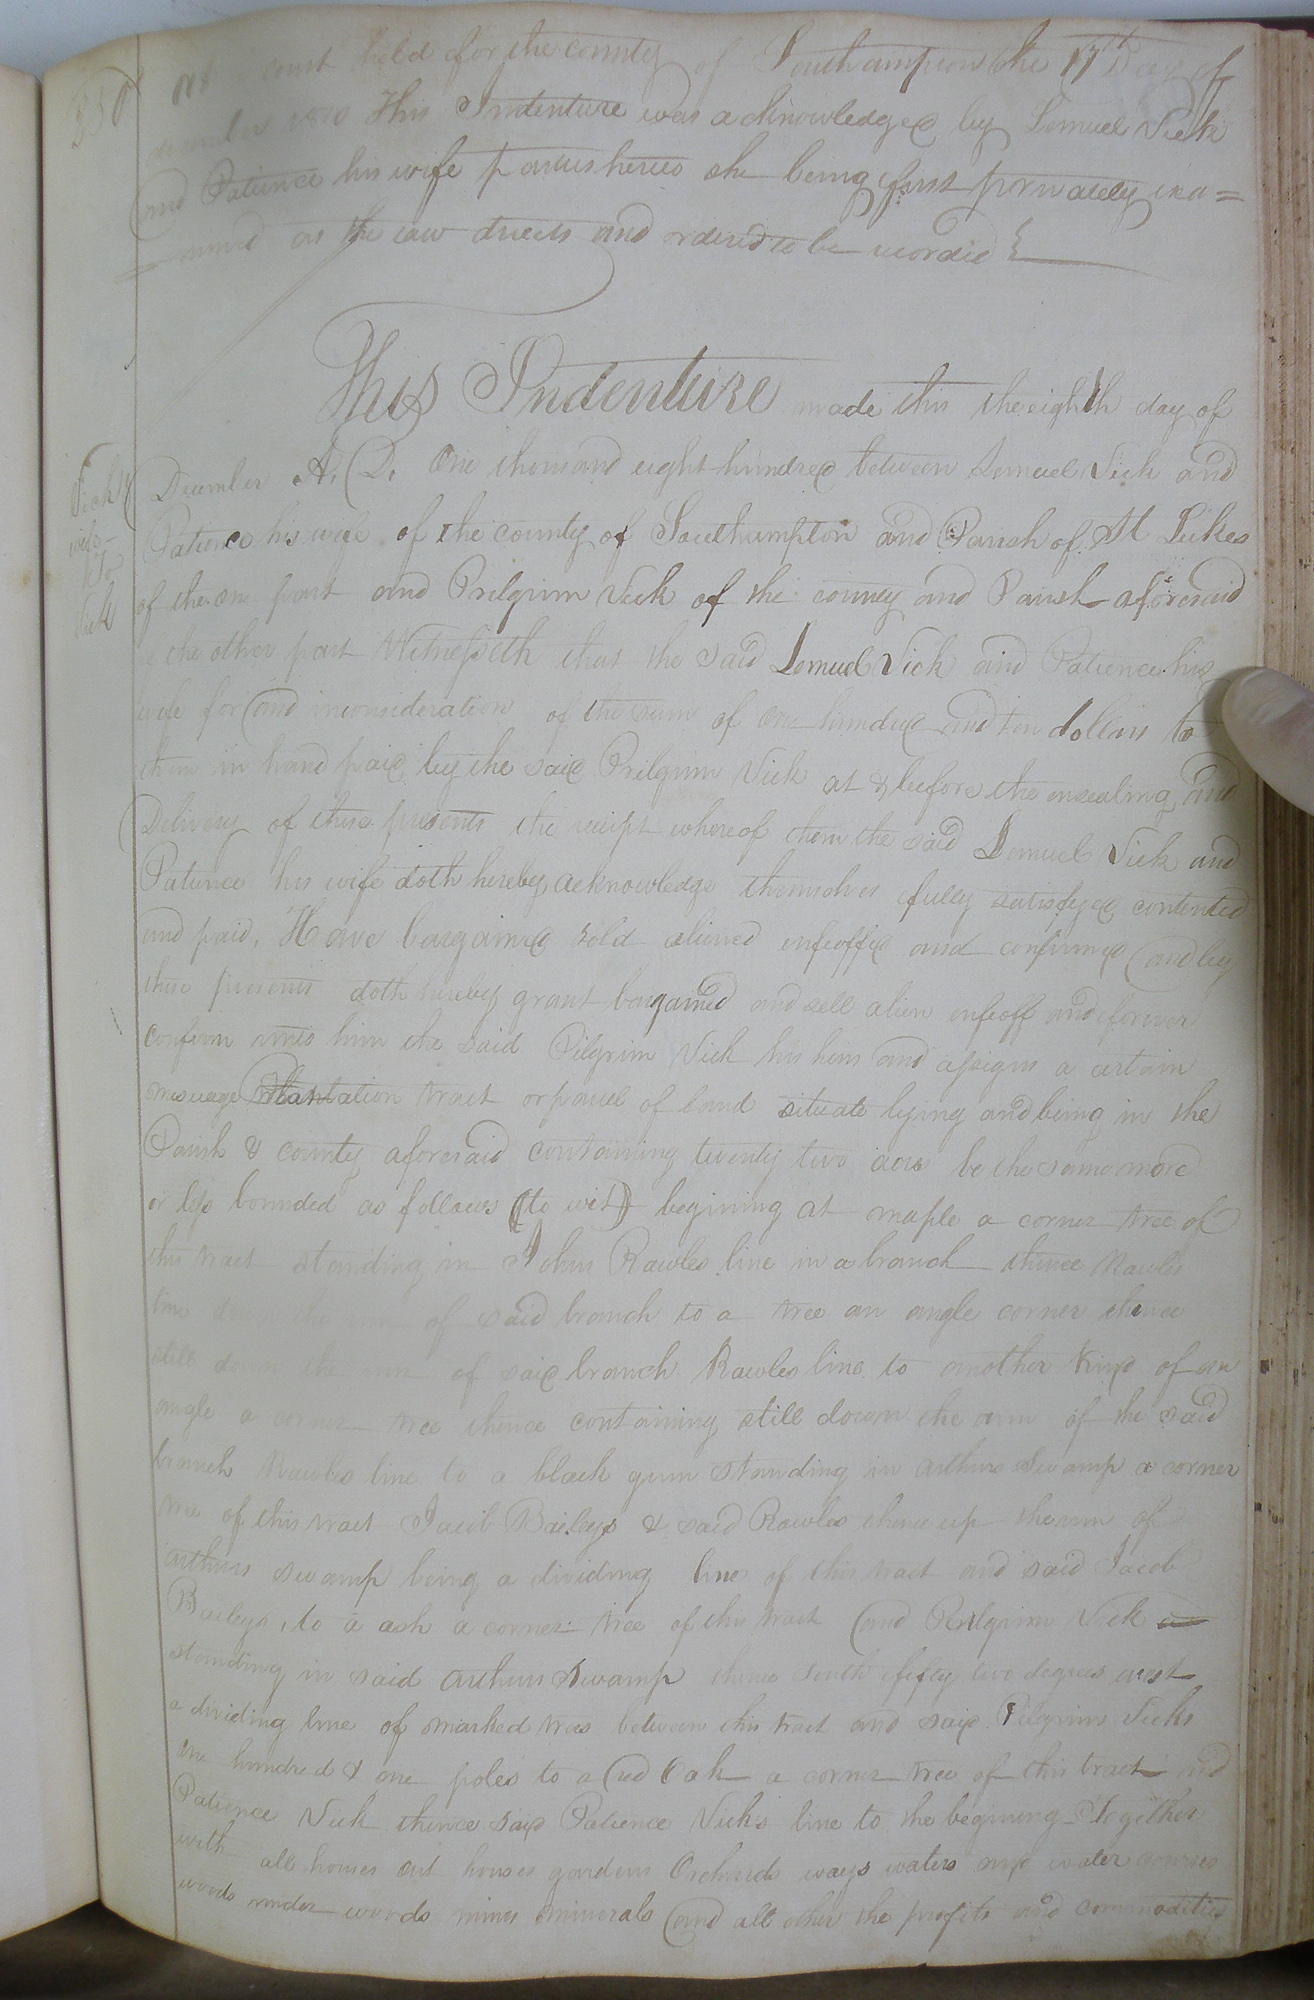 350
At court held for the county of Southampton the 17th Day of
December 1810 This Indenture was acknowledged by Lemuel Vick
and Patience his wife parties hereto she being first privately exa=
=mined as the law directs and ordered to be recorded
This Indenture made this the eighth day of
December A. D. One thousand eight hundred between Lemuel Vick and
Patience his wife of the county of Southampton and Parish of St Lukes
of the one part and Prilgrim Vick of the county and Parish aforesaid
the other part Witnesseth that the said Lemuel Vick and Patience his
wife for and inconsideration of the sum of one hundred and ten dollars to
them in hand paid by the said Prilgrim Vick at & before the ensealing and
Delivery of these presents the receipt whereof them the said Lemuel Vick and
Patience his wife doth hereby acknowledge themselves fully satisfyed contented
and paid, Have bargained sold aliened enfeoffed and confirmed and by
these presents doth hereby grant bargained and sell alien enfeoff and forever
confirm unto him the said Pilgrim Vick his heirs and assigns a certain
mesuage Plantation tract or parcel of land situate lying and being in the
Parish & county aforesaid containing twenty two acres be the same more
or less bounded as follows (to wit) begining at maple a corner tree of
this tract standing in John Rawles line in a branch thence Rawles
line down the run of said branch to a tree an angle corner thence
still down the run of said branch Rawles line to another kind of an
angle a corner tree thence containing still down the run of the said
branch Rawles line to a black gum standing in arthurs Swamp a corner
tree of this tract Jacob Baileys & said Rawles thence up the run of
arthurs swamp being a dividing line of this tract and said Jacob
Baileys, to a ash a corner tree of this tract and Perlgrim Vick
standing in said arthurs Swamp thence South fifty two degrees west
a dividing line of marked trees between this tract and said Pilgrim Vicks
one hundred & one poles to a red Oak a corner tree of this tract and
Patience Vick thence said Patience Vicks line to the begining Together
with all houses out houses gardens Orchards ways waters and water courses
woods under woods mines minerals and all other the profits and commodities
Vick &
wife
To
Vick